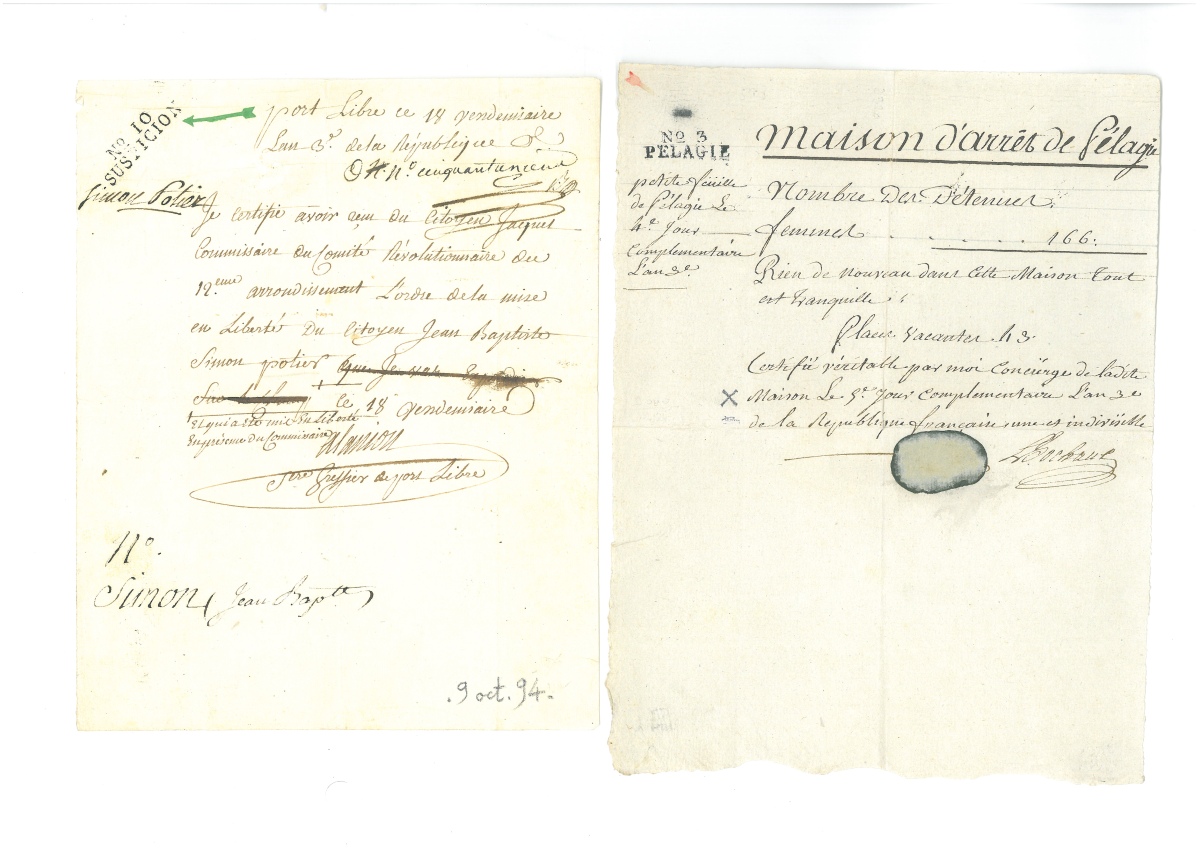 No 10
SUSTICION
port Libre ce 18 vendemiaire
L'an 3e de la République
N° cinquantaneuf
Simon Potier
Je certifie avoir recu du Citoyen Jaquet
Commissaire du Comité Révolutionnaire du
12eme arrondissement L'ordre de la mise
en Liberté du Citoyen Jean Baptiste
Simon potier
le 18 vendemiaire
et qui a été mis en Liberté
En présence du Commissaire
Greffier de port Libre
N°.
Simon, Jean Baptte
. 9 oct. 94.
No 3
PELAGIE
Maison d'arrêt de Pélagie
petite feuille
de Pélagie Le
4e Jour
Complementaire
L'an 3e
Nombre Des Détenues
femmes . . . . . . 166.
Rien de nouveau dans Cette Maison Tout
est tranquille
Places Vacantes 43
Certifié véritable par moi Concierge de ladite
Maison Le 5e Jour Complementaire L'an 3e
de la Republique française une et indivisible